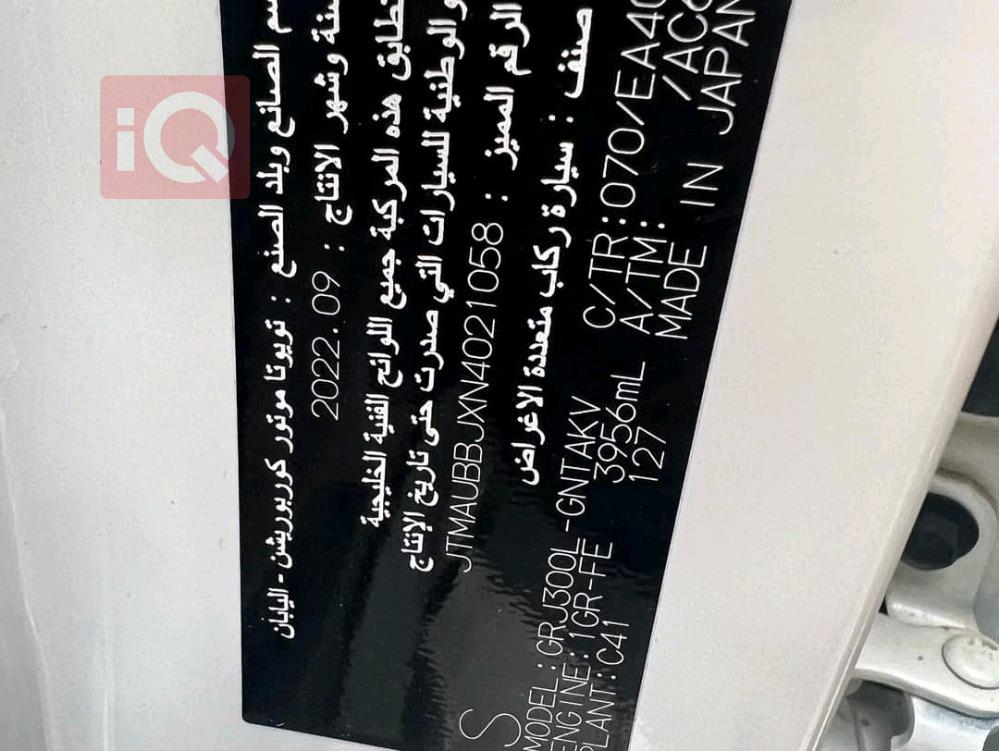 iQ
الصانع وبلد الصنع : تويوتا موتور كوربوريشن - اليابان
وشهر الانتاج : 2022.09
هذه المركبة جميع اللوائح الفنية الخليجية
والوطنية للسيارات التي صدرت حتى تاريخ الإنتاج
الرقم المميز : JTMAUBBJXN4021058
صنف : سيارة ركاب متعددة الاغراض
S
MODEL:GRJ300L-GNTAKV C/TR:070/EA40
ENGINE:1GR-FE 3956mL A/TM: /AC6
PLANT:C41 127 MADE IN JAPAN